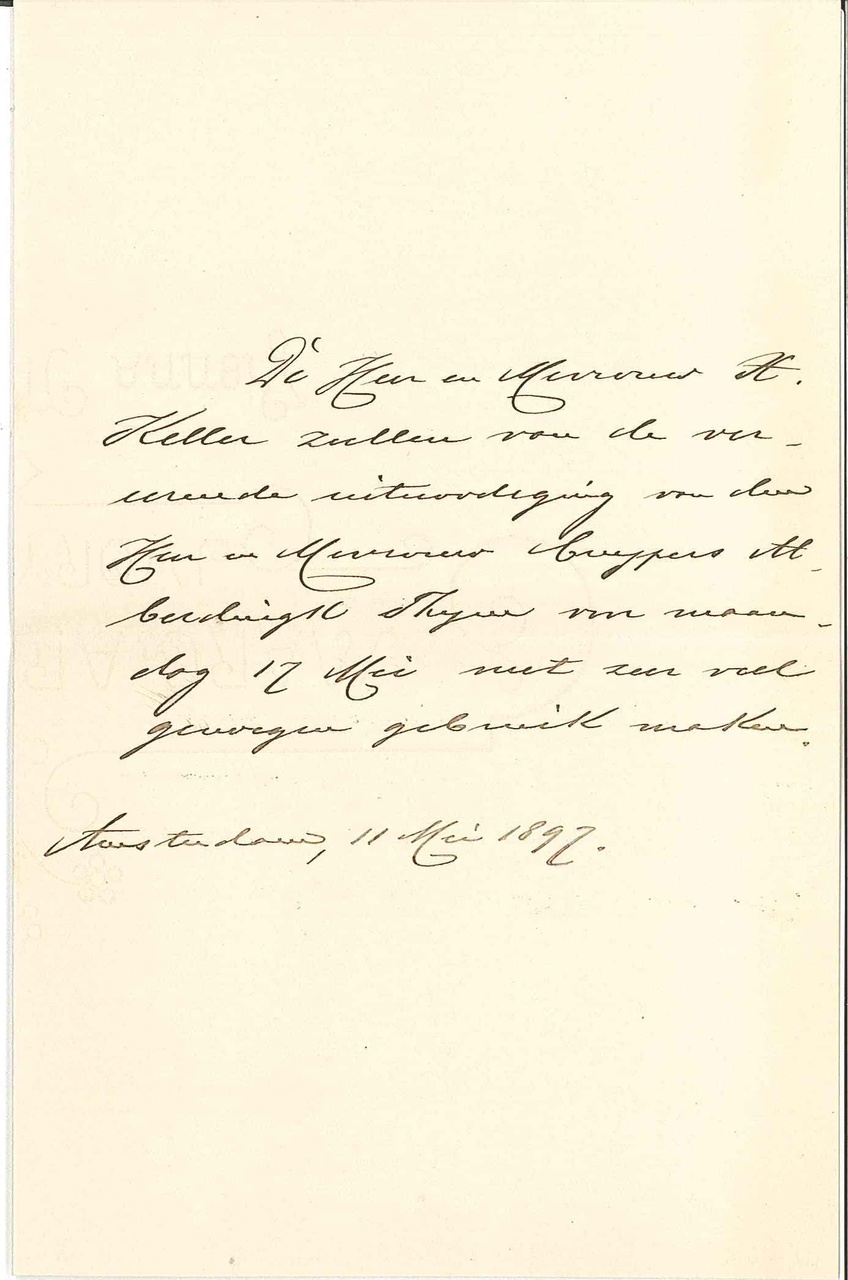 De Heer en Mevrouw H.
Keller zullen van de ver-
eerende uitnoodiging van den
Heer en Mevrouw Cuypers Al-
berdingk Thijm van maan-
dag 17 Mei met zeer veel
genoegen gebruik maken.
Amsterdam, 11 Mei 1897.